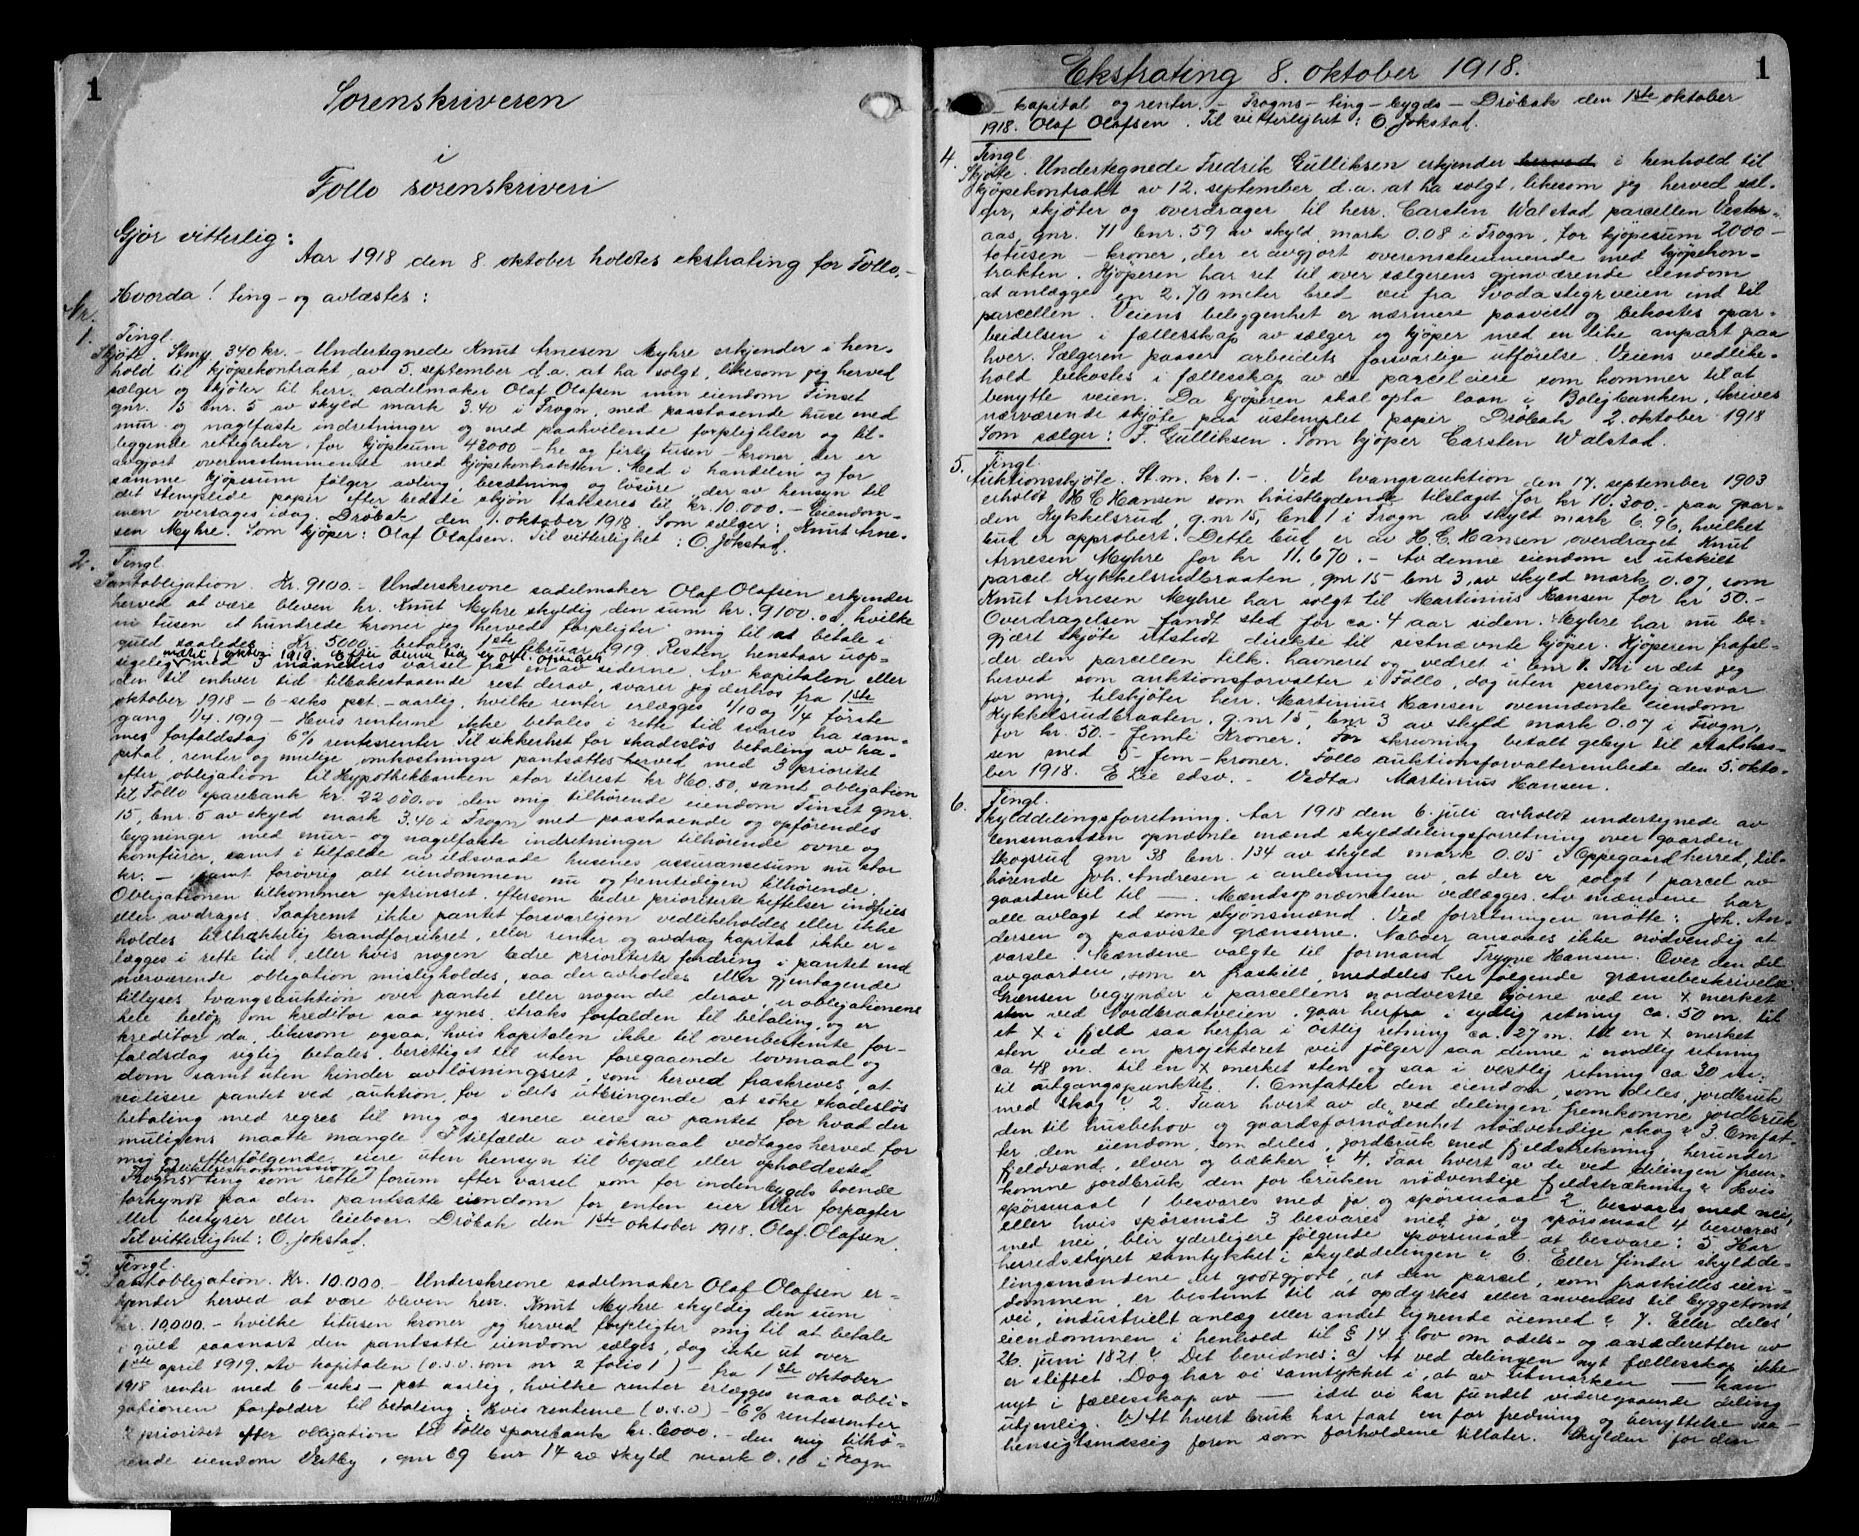 1
Sorenskriveren
i
Follo sorenskriveri
Gjør vitterlig:
Aar 1918 den 8. oktober holdtes ekstrating for Follo. –
Hvorda! ting- og avlæstes:
Nr.
1. Tingl.
Skjøte. Stmp. 340 kr. – Undertegnede Knut Arnesen Myhre erkjender i hen-
hold til kjøpekontrakt av 5. september d.a. at ha solgt, likesom jeg herved
sælger og skjøter til herr sadelmaker Olaf Olafsen min eiendom Tinset
gnr. 15 bnr. 5 av skyld mark 3.40 i Frogn, med paastaaende huse med
mur og naglfaste indretninger og med paahvilende forpligtelser og til-
liggende rettigheter, for kjøpesum 42000 – to og firti tusen – kroner, der er
avgjort overensstemmende med kjøpekontrakten. Med i handelen og for
samme kjøpesum følger avling, besætning og løsøre, der av hensyn til
det stemplede papir efter bedste skjøn takseres til kr. 10.000. – Eiendom-
men overtages idag. Drøbak den 1. oktober 1918. Som sælger: Knut Arne-
sen Myhre. Som kjøper: Olaf Olafsen. Til vitterlighet: O. Jokstad.
2. Tingl.
Pantobligation. Kr. 9100. – Underskrevne sadelmaker Olaf Olafsen erkjender
herved at være bleven hr. Knut Myhre skyldig den sum kr. 9100.00, hvilke
ni tusen et hundrede kroner jeg herved forpligter mig til at betale i
guld saaledes: Kr. 5000 betales 1ste februar 1919. Resten henstaar uop-
sigelig med 3 maaneders varsel fra en av siderne. Av kapitalen eller
den til enhver tid tilbakestaaende rest derav, svarer jeg derhos fra 1ste
oktober 1918 – 6 – seks pct. – aarlig, hvilke renter erlægges 1/10 og 1/4 første
gang 1/4. 1919 – Hvis renterne ikke betales i rette tid svares fra sam-
mes forfaldsdag 6% rentesrenter. Til sikkerhet for skadesløs betaling av ka-
pital, renter og mulige omkostninger pantsættes herved med 3 prioritet
efter obligation til Hypothekbanken stor tilrest kr 860.50, samt obligation
til Follo sparebank kr. 22000.00 den mig tilhørende eiendom Tinset gnr.
15, bnr. 5 av skyld mark 3.40 i Frogn med paastaaende og opførendes
bygninger med mur- og nagelfaste indretninger tilhørende ovne og
komfurer, samt i tilfælde av ildsvaade husenes assuransesum nu stor
kr. – samt forøvrig alt eiendommen nu og fremtidigen tilhørende.
Obligationen tilkommer optrinsret, eftersom bedre prioriterte heftelser indfries
eller avdrages. Saafremt ikke pantet forsvarligen vedlikeholdes eller ikke
holdes tilstrækkelig brandforsikret, eller renter og avdrag kapital ikke er-
lægges i rette tid, eller hvis nogen bedre prioriterte fordring i pantet end
nærværende obligation misligholdes, saa der avholdes eller gjentagende
tillyses tvangsauktion over pantet eller nogen del derav, er obligationens
hele beløp om kreditor saa synes, straks forfalden til betaling, og er
kreditor da, likesom ogsaa, hvis kapitalen ikke til ovenbestemte for-
faldsdag rigtig betales, berettiget til uten foregaaende lovmaal og
dom samt uten hinder av løsningsret, som herved fraskrives, at
realisere pantet ved auktion, for i dets utbringende at søke skadesløs
betaling med regres til mig og senere eiere av pantet for hvad der
muligens maatte mangle. I tilfælde av søksmaal vedtages herved for
mig og efterfølgende eiere uten hensyn til bopæl eller opholdssted
Frogns forlikelseskommission og ting som rette forum efter varsel som for indenbygds boende
forkyndt paa den pantsatte eiendom for enten eier eller forpagter
eller bestyrer eller leieboer. Drøbak den 1ste oktober 1918. Olaf Olafsen.
Til vitterlighet: O. Jokstad.
3. Tingl.
Pantobligation. Kr. 10.000 – Underskrevne sadelmaker Olaf Olafsen er-
kjender herved at være bleven herr. Knut Myhre skyldig den sum
kr. 10,000. – hvilke titusen kroner jeg herved forpligter mig til at betale
i guld saasnart den pantsatte eiendom sælges, dog ikke ut over
1ste april 1919. Av kapitalen (o.s.v. som nr 2 folio 1) – fra 1ste oktober
1918 renter med 6 – seks – pct aarlig, hvilke renter erlægges naar obli-
gationen forfalder til betaling. Hvis renterne (o.s.v) – 6% rentesrenter
2 prioritet efter obligation til Follo sparebank kr. 6000. – den mig tilhø-
rende eiendom Vestby, gnr 69 bnr 14 av skyld mark 0.10 i Frogn
Ekstrating 8. oktober 1918.
1
kapital og renter. – Frogns – ting – bygds – Drøbak den 1ste oktober
1918. Olaf Olafsen. Til vitterlighet: O. Jokstad.
4. Tingl.
Skjøte. Undertegnede Fredrik Gulliksen erkjender herved i henhold til
kjøpekontrakt av 12. september d.a. at ha solgt, likesom jeg herved sæl-
ger, skjøter og overdrager til herr. Carsten Walstad parcellen Vester-
aas, gnr. 71 bnr. 59 av skyld mark 0.08 i Frogn, for kjøpesum 2000 –
totusen – kroner, der er avgjort overensstemmende med kjøpekon-
trakten. Kjøperen har ret til over sælgerens gjenværende eiendom
at anlægge en 2.70 meter bred vei fra Svodastigrveien ind til
parcellen. Veiens beleggenhet er nærmere paavist og bekostes opar-
beidelsen i fællesskap av sælger og kjøper med en like anpart paa
hver. Sælgeren paaser arbeidets forsvarlige utførelse. Veiens vedlike-
hold bekostes i fællesskap av de parceleiere som kommer til at
benytte veien. Da kjøperen skal opta laan i Boligbanken, skrives
nærværende skjøte paa ustemplet papir. Drøbak 2. oktober 1918
Som sælger: F. Gulliksen. Som kjøper Carsten Walstad.
5. Tingl.
Auktionsskjøte. St.m. kr 1. – Ved tvangsauktion den 17. september 1903
erholdt H. C. Hansen som høistbydende tilslaget for kr 10,300. – paa gaar-
den Kykkelsrud, g.nr 15, bnr 1 i Frogn av skyld mark 6.96, hvilket
bud er approbert. Dette bud er av H. C. Hansen overdraget Knut
Arnesen Myhre for kr 11.670. – Av denne eiendom er utskilt
parcel Kykkelsrudbraaten, gnr 15 bnr 3, av skyld mark 0.07, som
Knut Arnesen Myhre har solgt til Martinius Hansen for kr 50. –
Overdragelsen fandt sted for ca. 4 aar siden. Myhre har nu be-
gjært skjøte utstedt direkte til sistnævnte kjøper. Kjøperen frafal-
der den parcellen tilk. havneret og vedret i bnr 1. Thi er det jeg
herved som auktionsforvalter i Follo, dog uten personlig ansvar
for mig, tilskjøter herr. Martinius Hansen ovennævnte eiendom
Kykkelsrudbraaten, g.nr 15, bnr 3 av skyld mark 0.07 i Frogn,
for kr. 50. – femti kroner. For skrivning betalt gebyr til statskas-
sen med 5 – fem – kroner. Follo auktionsforvalterembede den 5. okto-
ber 1918. E Lie edsv. – Vedtas Martinius Hansen.
6. Tingl.
Skylddelingsforretning. Aar 1918 den 6. juli avholdt undertegnede av
lensmanden opnævnte mænd skylddelingsforretning over gaarden
Skogsrud gnr 38 bnr. 134 av skyld mark 0.05 i Oppegaard herred, til-
hørende Joh. Andresen i anledning av, at der er solgt 1 parcel av
gaarden til til –. Mændsopnævnelsen vedlægges. Av mændene har
alle avlagt ed som skjønsmænd. Ved forretningen møtte: Joh. An-
dersen og paaviste grænserne. Naboer ansaaes ikke nødvendig at
varsle. Mændene valgte til formand Trygve Hansen. Over den del
av gaarden, som er fraskilt, meddeles her følgende grænsebeskrivelse:
Grænsen begynder i parcellens nordvestre hjørne ved en X merket
sten ved Nordbraatveien, gaar herfra i sydlig retning ca. 50 m. til
et X i fjeld saa herfra i østlig retning ca. 27 m. til en X merket
sten ved en projekteret vei følger saa denne i nordlig retning
ca 48 m. til en X merket sten og saa i vestlig retning ca 30 m:
til utgangspunktet. 1. Omfatter den eiendom, som deles, jordbruk
med skog? 2. Faar hvert av de ved delingen fremkomne jordbruk
den til husbehov og gaardsfornødenhet nødvendige skog? 3. Omfat-
ter den eiendom, som deles, jordbruk med fjeldstrekning, herunder
fjeldvand, elver og bækker? 4. Faar hvert av de ved delingen frem-
komne jordbruk den for bruken nødvendige fjeldstrækning? Hvis
spørsmaal 1 besvares med ja og spørsmaal 2 besvares med nei,
eller hvis spørsmål 3 besvares med ja, og spørsmaal 4 besvares
med nei, blir yderligere følgende spørsmaal at besvare: 5 Har
herredsstyret samtykket i skylddelingen? 6. Eller finder skyldde-
lingsmændene det godtgjort, at den parcel, som fraskilles eien-
dommen, er bestemt til at opdyrkes eller anvendes til byggetomt,
vei, industrielt anlæg eller andet lignende øiemed? 7. Eller deles
eiendommen i henhold til § 14 i lov om odels- og aasædesretten av
26. juni 1821? Det bevidnes: a) At ved delingen nyt fællesskap ikke
er stiftet. Dog har vi samtykket i, at av utmarken – kan
nyt i fællesskap av – idet vi har fundet videregaaende deling
utjenlig. b) At hvert bruk har faat en for fredning og benyttelse saa
hensigtsmæssig form som forholdene tillater. Skylden for den